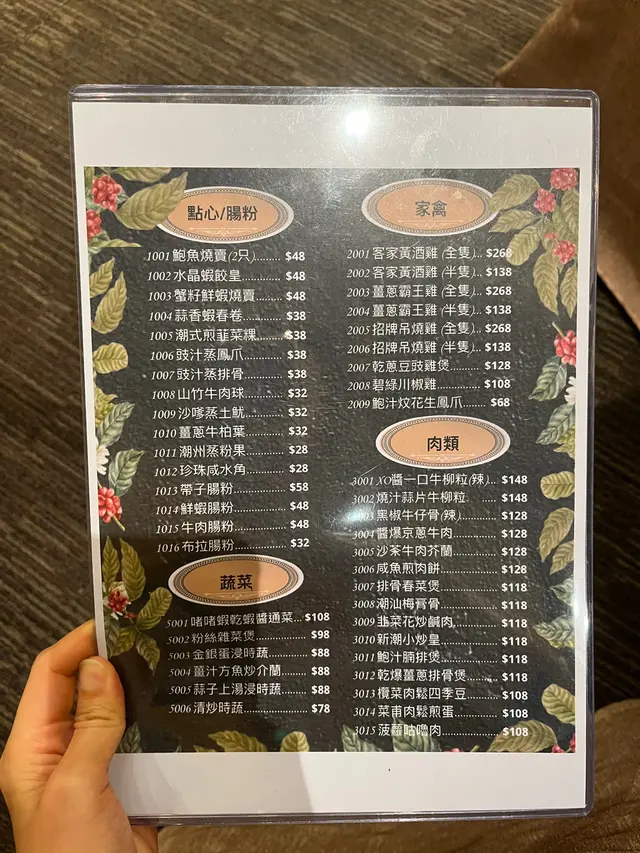 點心/腸粉
1001 鮑魚燒賣(2只)......... $48
1002 水晶蝦餃皇........... $48
1003 蟹籽鮮蝦燒賣......... $48
1004 蒜香蝦春卷........... $38
1005 潮式煎韮菜粿......... $38
1006 豉汁蒸鳳爪........... $38
1007 豉汁蒸排骨........... $38
1008 山竹牛肉球........... $32
1009 沙嗲蒸土魷........... $32
1010 薑蔥牛柏葉........... $32
1011 潮州蒸粉果........... $28
1012 珍珠咸水角........... $28
1013 帶子腸粉............. $58
1014 鮮蝦腸粉............. $48
1015 牛肉腸粉............. $48
1016 布拉腸粉............. $32
蔬菜
5001 啫啫蝦乾蝦醬通菜... $108
5002 粉絲雜菜煲........... $98
5003 金銀蛋浸時蔬......... $88
5004 薑汁方魚炒介蘭....... $88
5005 蒜子上湯浸時蔬....... $88
5006 清炒時蔬............. $78
家禽
2001 客家黃酒雞 (全隻)... $268
2002 客家黃酒雞 (半隻)... $138
2003 薑蔥霸王雞 (全隻)... $268
2004 薑蔥霸王雞 (半隻)... $138
2005 招牌吊燒雞 (全隻)... $268
2006 招牌吊燒雞 (半隻)... $138
2007 乾蔥豆豉雞煲......... $128
2008 碧綠川椒雞........... $108
2009 鮑汁炆花生鳳爪....... $68
肉類
3001 XO醬一口牛柳粒(辣)... $148
3002 燒汁蒜片牛柳粒 $148
3003 黑椒牛仔骨(辣)....... $128
3004 醬爆京蔥牛肉......... $128
3005 沙茶牛肉芥蘭......... $128
3006 咸魚煎肉餅........... $128
3007 排骨春菜煲........... $118
3008 潮汕梅膏骨........... $118
3009 韭菜花炒鹹肉......... $118
3010 新潮小炒皇........... $118
3011 鮑汁腩排煲........... $118
3012 乾爆薑蔥排骨煲....... $118
3013 欖菜肉鬆四季豆....... $108
3014 菜甫肉鬆煎蛋......... $108
3015 菠蘿咕嚕肉........... $108